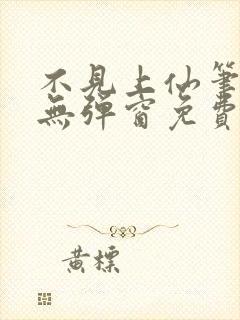 不見上仙筆
無彈窗免費
黃標